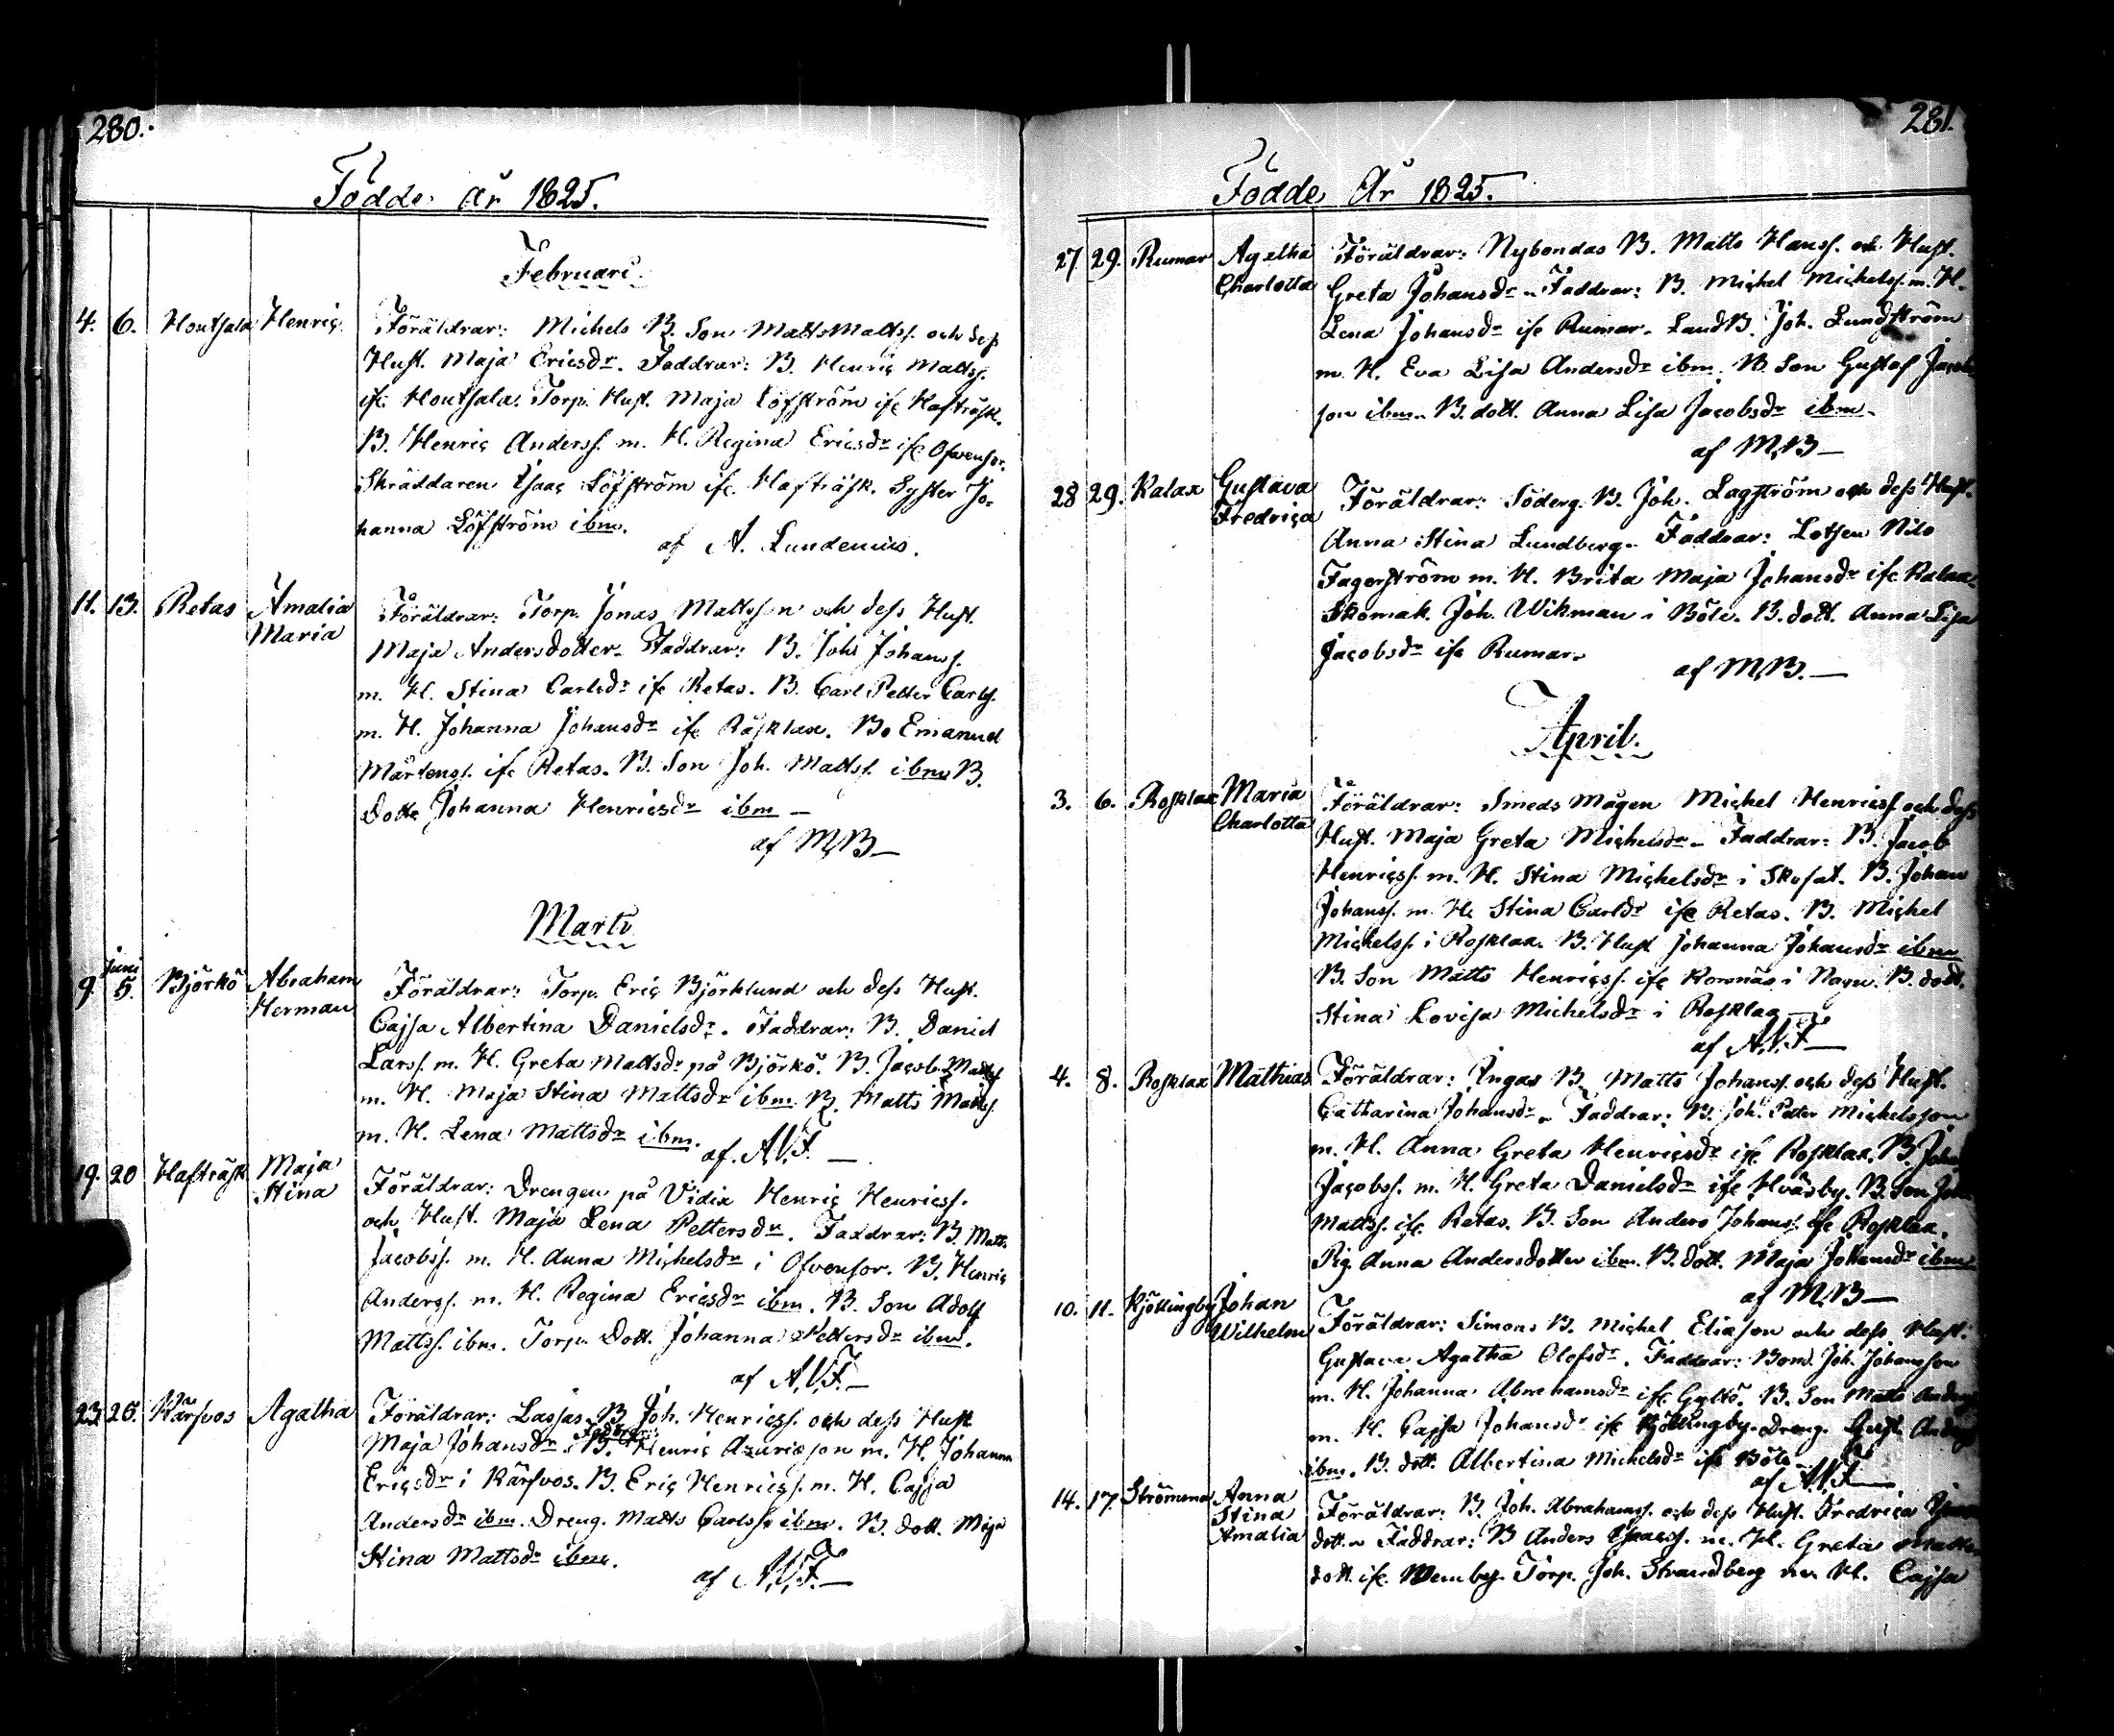 280.
Födde år 1825.
Februari.
4. 6. Houtsala Henric. Föräldrar: Michels B. Son Matts Mattss. och dess
Hust. Maja Ericsdr. Faddrar: B. Henric Mattss.
ifr. Houtsala. Torp. Hust. Maja Löfström ifr. Hafträsk.
B. Henric Anderss. m. H. Regina Ericsdr ifr Ofvensor.
Skräddaren Isaac Löfström ifr. Hafträsk. Syster Jo-
hanna Löfström ibm.
af A. Lundenius.
11. 13. Retas Amalia Föräldrar: Torp. Jonas Mattsson och dess Hust.
Maria Maja Andersdotter. Faddrar: B. Joh: Johanss.
m. H. Stina Carlsdr ifr Retas. B. Carl Petter Carlss.
m. H. Johanna Johansdr ifr Råsklax. B. Emanuel
Mårtenss. ifr Retas. B. Son Joh. Mattss. ibm B.
Dottr Johanna Henricsdr ibm –
af MB –
Marti
9. Juni 5. Björkö Abraham Föräldrar: Torp. Eric Björklund och dess Hust.
Herman Cajsa Albertina Danielsdr. Faddrar: B. Daniel
Larss. m. H. Greta Mattsdr på Björkö. B. Jacob Mattss
m. H. Maja Stina Mattsdr ibm B. Matts Mattss.
m. H. Lena Mattsdr ibm.
af. A.V.F. –
19. 20 Hafträsk Maja Föräldrar: Drengen på Vidix Henric Henricss.
Stina och Hust. Maja Lena Pettersdr. Faddrar: B. Matts
Jacobss. m. H. Anna Michelsdr i Ofvensor. B. Henric
Anderss. m. H. Regina Ericsdr ibm. B. Son Adolf
Mattss. ibm. Torp. Dott. Johanna Pettersdr ibm.
af A.V.F. –
23 25. Kärfvos Agatha Föräldrar: Lassas B. Joh. Henricss. och dess Hust
Maja Johansdr. Faddrar: B. Henric Azuriæson m. H. Johanna
Ericsdr i Kärfvos. B. Eric Henricss. m. H. Cajsa
Andersdr ibm. Dreng. Matts Carlss. ibm. B. dott. Maja
Stina Mattsdr ibm.
af A.V.F. –
281.
Födde År 1825.
27. 29. Rumar Agatha Föräldrar: Nybondas B. Matts Hanss. och Hust.
Charlotta Greta Johansdr. Faddrar: B. Michel Michelss. m. H.
Lena Johansdr ifr Rumar. LandB. Joh. Lundström
m. H. Eva Lisa Andersdr ibm. B. Son Gustaf Jacob
son ibm. B. dott. Anna Lisa Jacobsdr ibm.
af MB –
28 29. Kalax Gustava Föräldrar: Söderg. B. Joh. Lagström och dess Hust.
Fredrica Anna Stina Lundberg. Faddrar: Lotsen Nils
Fagerström m. H. Brita Maja Johansdr ifr Kalax.
Skomak. Joh. Wikman i Böle. B. dott. Anna Lisa
Jacobsdr ifr Rumar.
af MB. –
April.
3. 6. Rosklax Maria Föräldrar: Smeds Mågen Michel Henricss. och dess
Charlotta Hust. Maja Greta Michelsdr. Faddrar: B. Jacob
Henricss. m. H. Stina Michelsdr i Skofat. B. Johan
Johanss. m. H. Stina Carlsdr ifr Retas. B. Michel
Michelss. i Rosklax. B. Hust Johanna Johansdr ibm
B. Son Matts Henricss. ifr Kornäs i Nagu. B. dott.
Stina Lovisa Michelsdr i Rosklax
af A.V.F –
4. 8. Rosklax Mathias Föräldrar: Ingas B. Matts Johanss. och dess Hust.
Catharina Johansdr. Faddrar: B. Joh. Petter Michelsson
m. H. Anna Greta Henricsdr ifr Rosklax. B. Johan
Jacobss. m. H. Greta Danielsdr ifr Hväsby. B. Son Joh.
Mattss. ifr. Retas. B. Son Anders Johanss. ifr Rosklax.
Pig. Anna Andersdotter ibm. B. dott. Maja Johansdr ibm
af MB –
10. 11. Kjöttingby Johan Föräldrar: Simons B. Michel Eliason och dess Hust.
Wilhelm Gustava Agatha Olofsdr. Faddrar: Bond. Joh. Johansson
m. H. Johanna Abrahamsdr ifr Gyltö. B. Son Matts Anderss
m. H. Cajsa Johansdr ifr Kjöttingby. Dreng. Gust. Anderss
ibm. B. dott. Albertina Michelsdr ifr Böle.
af A.V.F –
14. 17. Strömma Anna Föräldrar: B. Joh. Abrahamss. och dess Hust. Fredrica
Stina dott. Faddrar: B Anders Isaacss. m. H. Greta Matts
Amalia dott. ifr. Wemby. Torp. Joh. Strandberg m. H. Cajsa